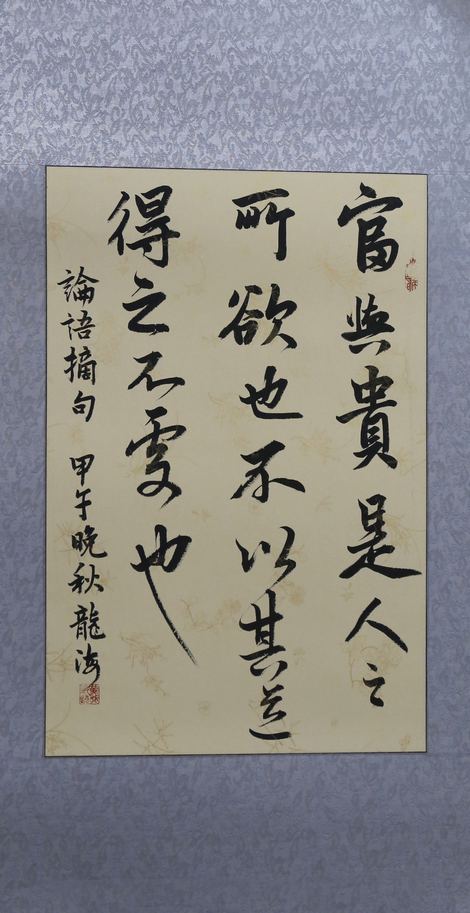 富與貴是人之
所欲也不以其道
得之不處也
論語摘句 甲午晚秋龍海